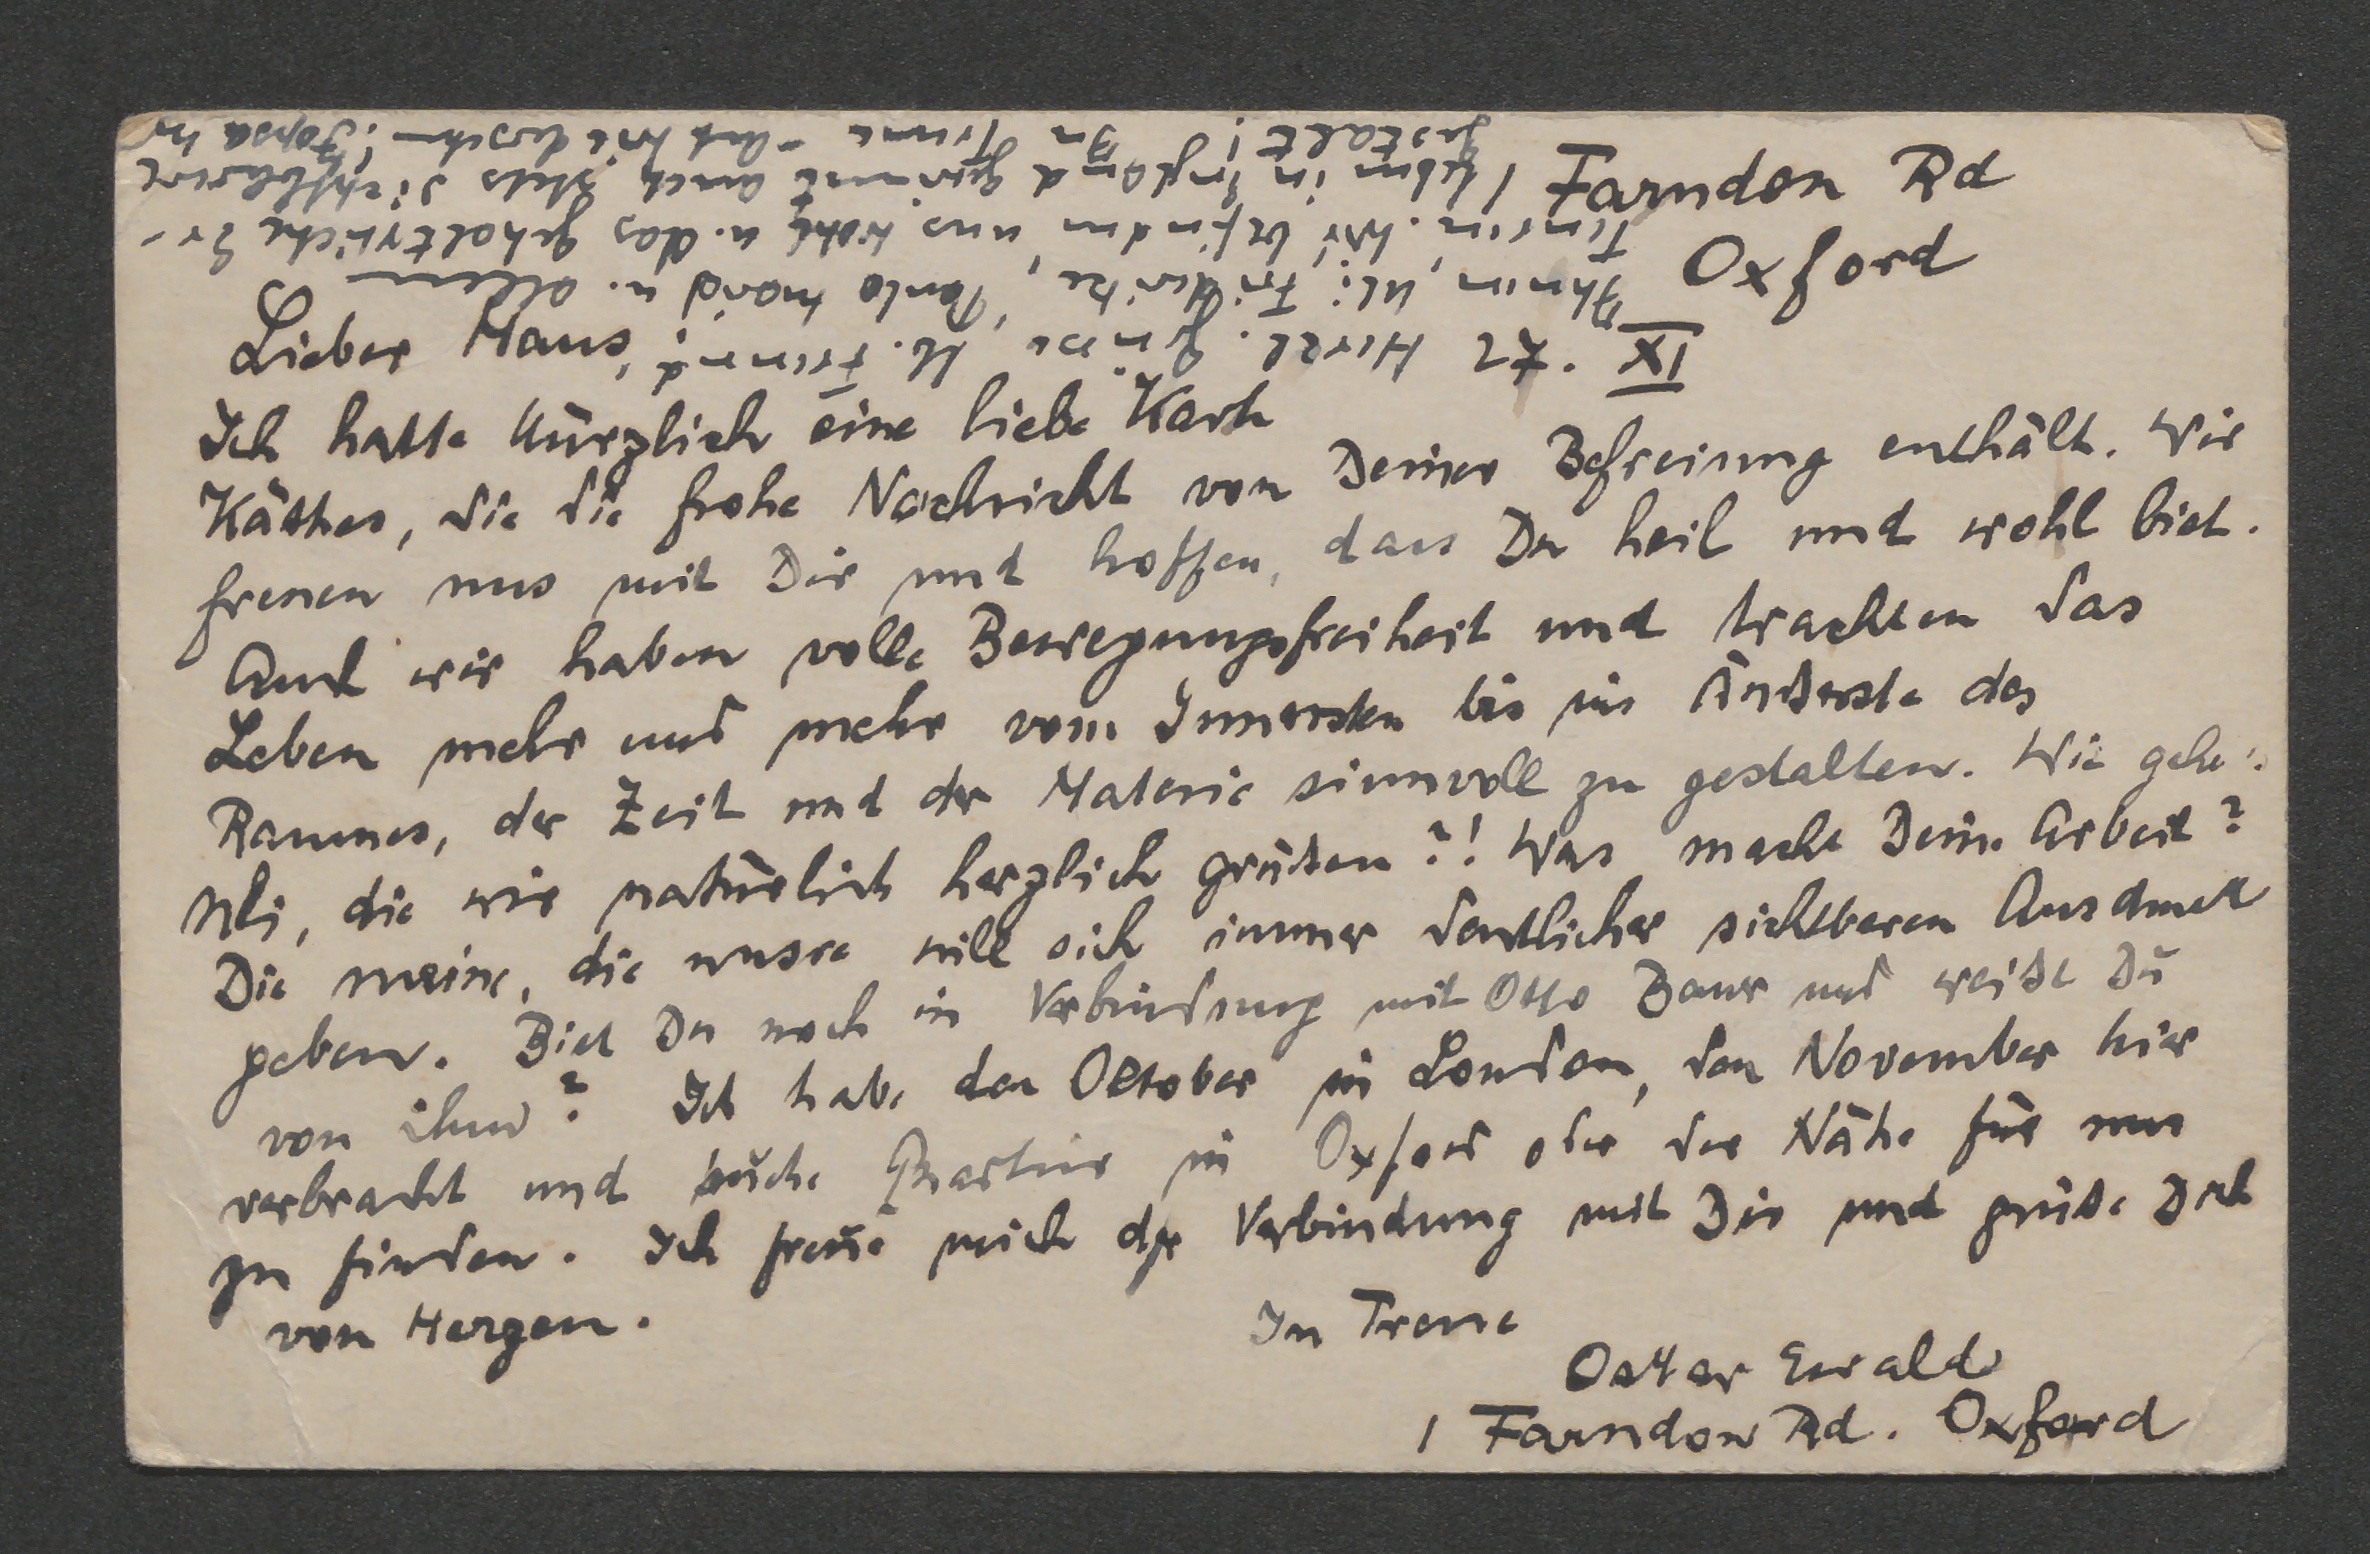 1 Farndon Rd
Oxford
27. IX
Lieber Hans,
Ich hatte kürzlich eine liebe Karte
Käthes, die die frohe Nachricht von Deiner Befreiung enthält. Wir
freuen uns mit Dir und hoffen, dass Du heil und wohl bist.
Auch wir haben volle Bewegungsfreiheit und trachten das
Leben mehr und mehr vom Innersten bis ins Äußerste des
Raumes, der Zeit und der Materie sinnvoll zu gestalten. Wie geht's
Uli, die wir natürlich herzlich grüßen?! Was macht Deine Arbeit?
Die meine, die unsre will sich immer deutlicher sichtbaren Ausdruck
geben. Bist Du noch in Verbindung mit Otto Bauer und weißt Du
von ihm? Ich habe den October in London, den November hier
verbracht und suche Quartier in Oxford oder der Nähe für uns
zu finden. Ich freue mich der Verbindung mit Dir und grüße Dich
von Herzen.
In Treue
Oskar Ewald
1 Farndon Rd. Oxford
Herzl. Grüsse l. Freund,
Ihnen, Uli, Friderike, Paula u. allen
Teuren. Wir befinden uns wohl u. das
Leben in England gewinnt auch stets sichtbarere
Gestalt! In Treue